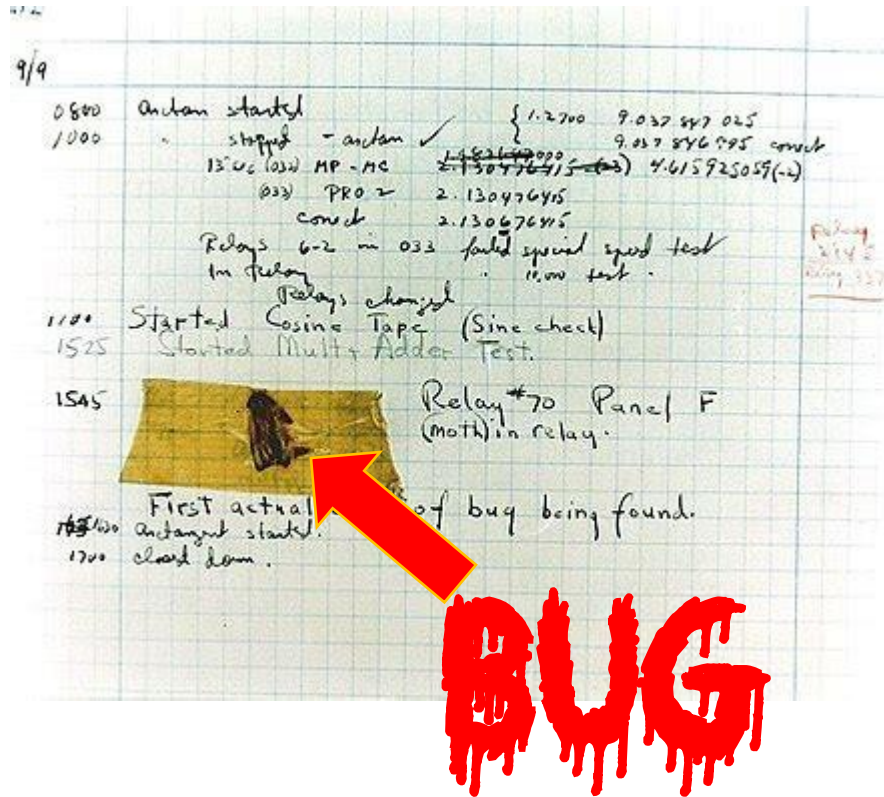 9/9
0800 Antan started { 1.2700 9.037 847 025
1000 " stopped - antan ✓ 9.037 846 795 correct
13"UC (032) MP - MC 2.130476415 (-3) 4.615925059(-2)
(033) PRO 2 2.130476415
correct 2.130676415
Relays 6-2 in 033 failed special speed test
In Relay " 10,000 test .
Relays changed
Relay
1100 Started Cosine Tape (Sine check)
1525 Started Mult + Adder Test.
1545 Relay #70 Panel F
(moth) in relay.
First actual of bug being found.
1630 arctangent started.
1700 closed down.
BUG